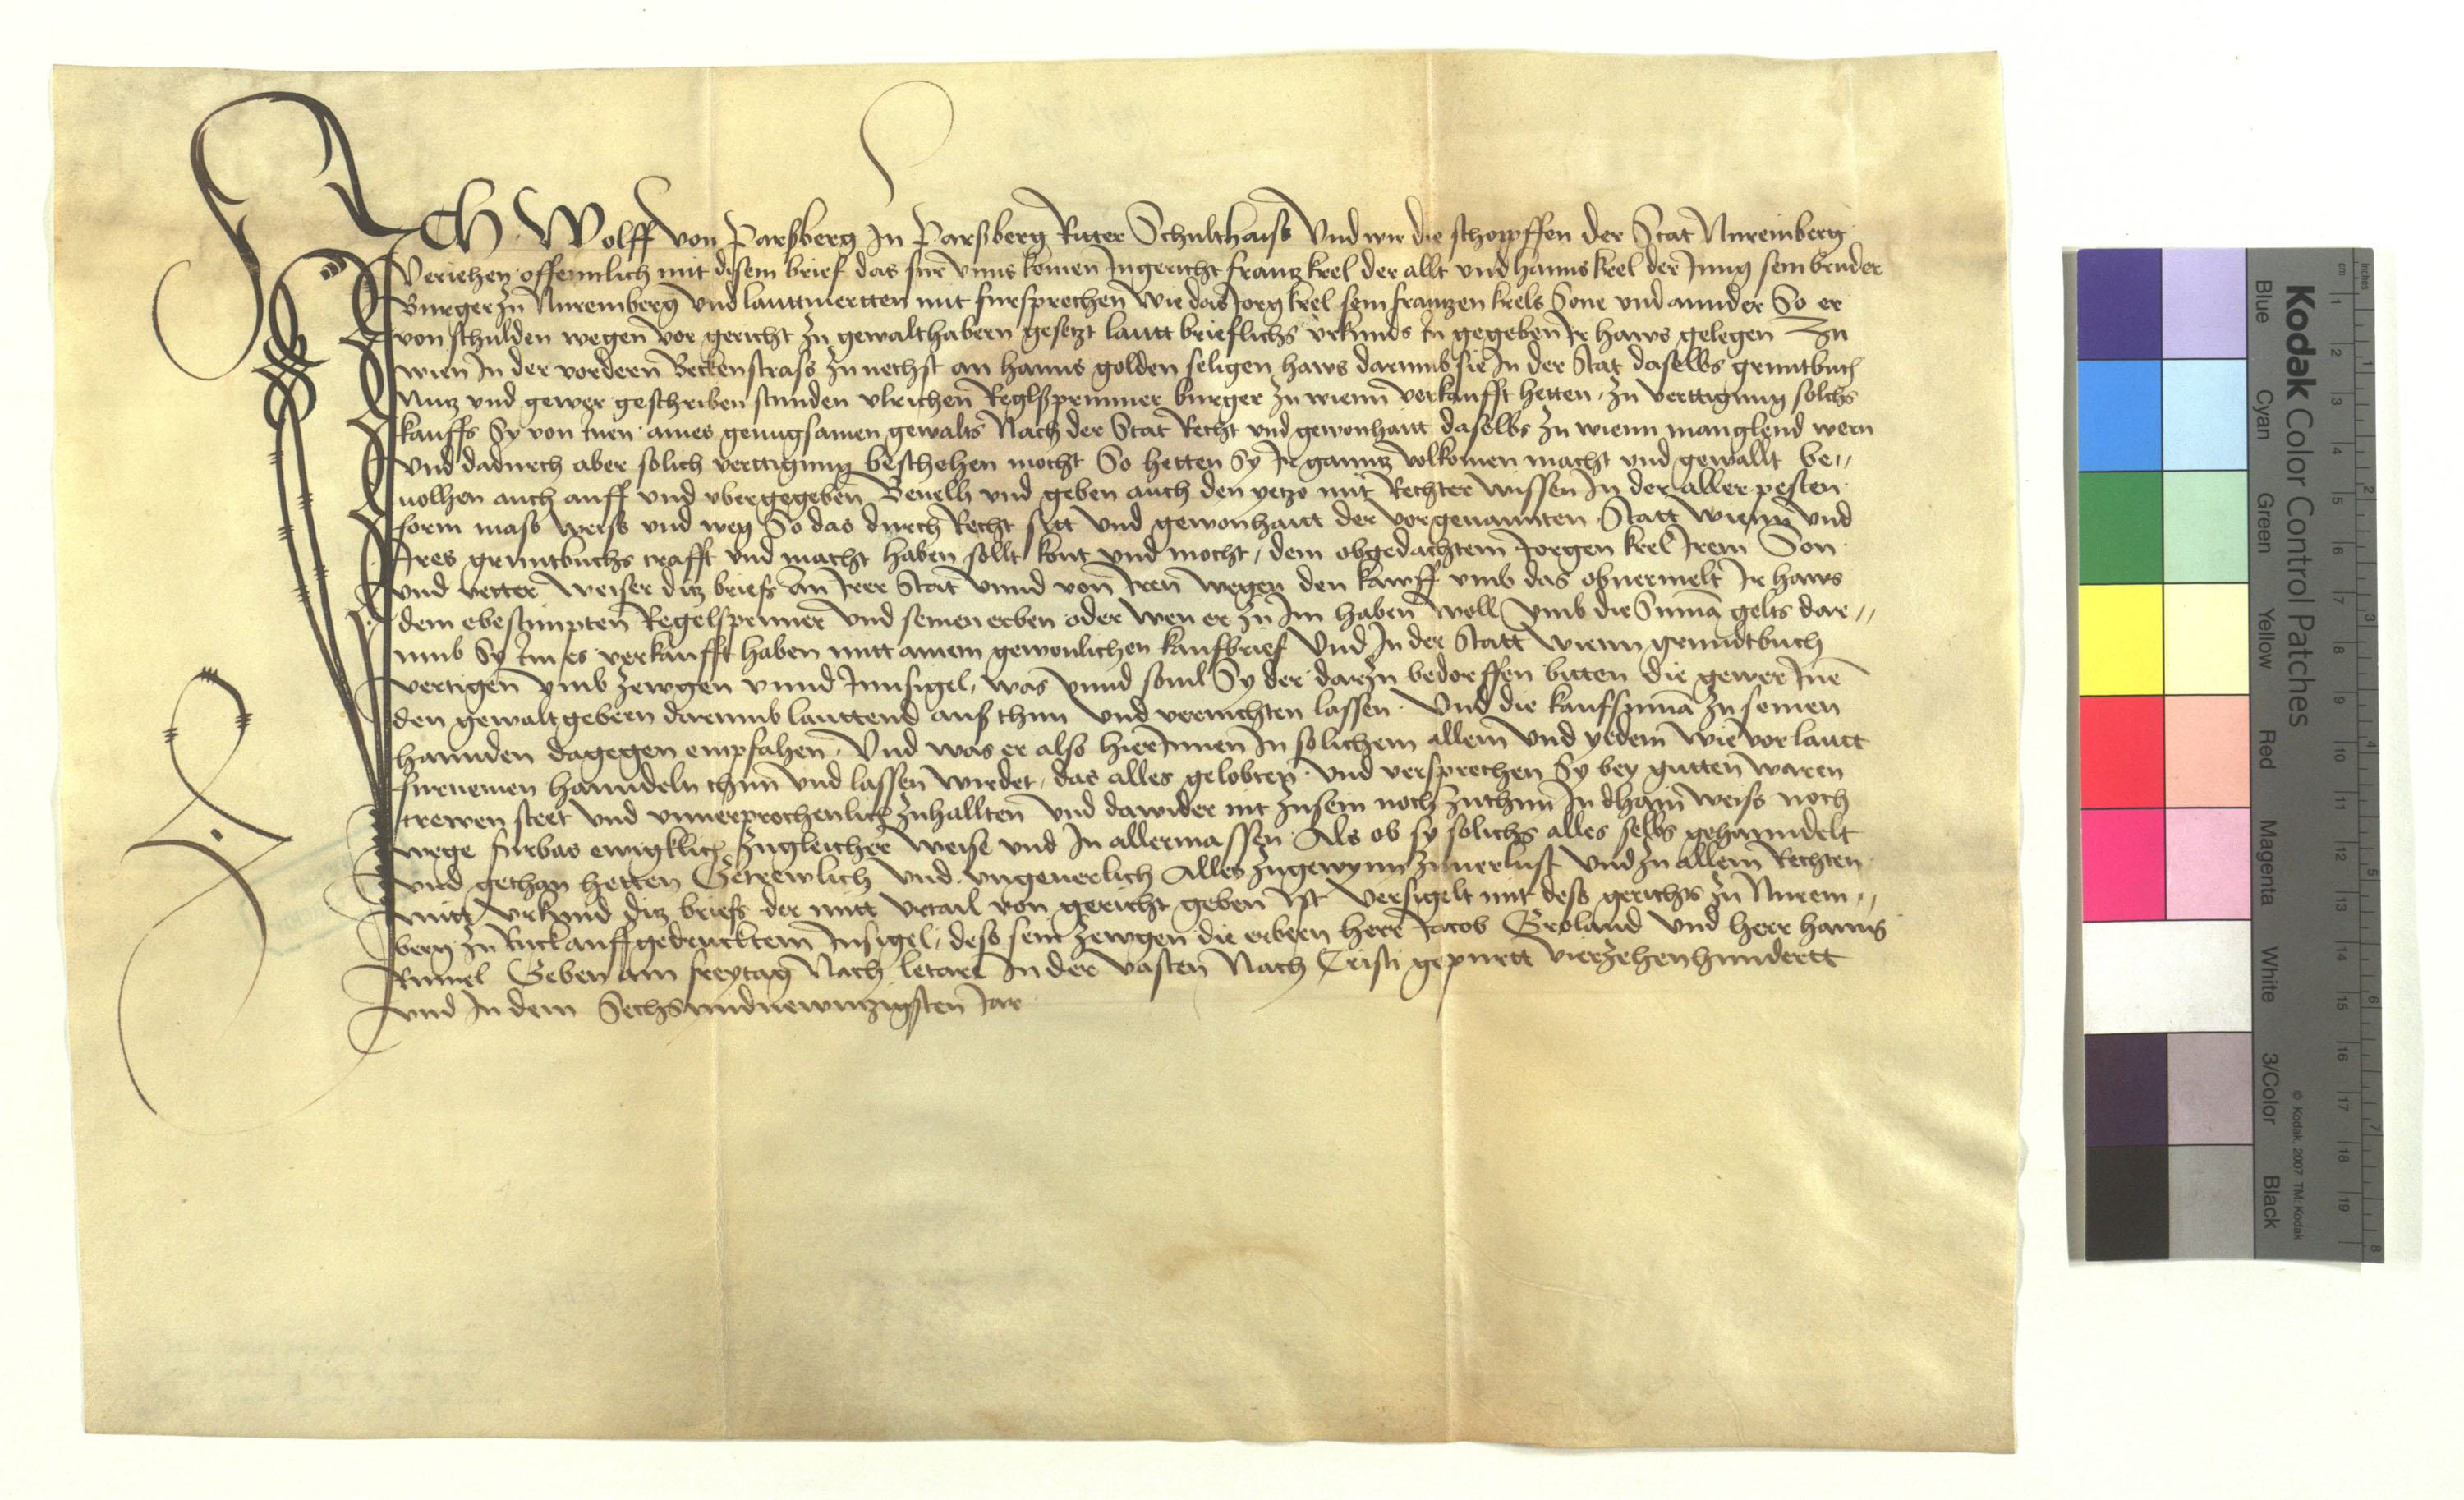 Ich Wolff von Parsberg zu Parsberg Ritter Schulthaiss Vnd wir die schopffen der Stat Nuremberg
Veriehen offennlich mit disem brief das für vnns komen Ingericht frantz krel der allt vnd hanns krel der Jung sein bruder
Burger zu Nuremberg vnd lauttmertten mit fursprechen wie das Jorg krel sein frantzen krels Sone vnd annder So er
von schulden wegen vor gericht zu gewalthabern gesetzt lautt brieflichs vrkunds In gegeben Ir haws gelegen Zu
wien In der vordern Beckenstrass zu nechst an hanns golden seligen haws darumb sie In der Stat daselbs gruntbuch
Nutz vnd gewer geschriben stunden vlrichen Reglsprunner burger zu wienn verkaufft hetten, zu verttigung solchs
kauffs Sy von Inen aines genugsamen gewalts Nach der Stat Recht vnd gewonhaitt daselbs zu wienn manglend wern
Vnd dadurch aber solich verttigung beschehen mocht So hetten Sy Ir ganntz volkomen macht vnd gewallt be„
uolhen auch auff vnd vbergegeben Beuelh vnd geben auch den yetzo mit Rechter wissen In der aller pesten
form mass weiss vnd weg So das durch Recht sytt vnd gewonhaitt der vorgenannten Statt wienn vnd
Ires gruntbuchs crafft vnd macht haben sollt kont vnd mocht, dem obgedachtem Jorgen krel Irem Son
vnd vetter weiser ditz briefs an Irer Stat vnnd von Iren wegen den kawff vmb das obuermelt Ir haws
dem ebestimpten Regelsprunner vnd seinen erben oder wen er zu Im haben woll vmb die Suma gelts dar„
umb Sy Im es verkaufft haben mitt ainem gewonlichen kaufbrief Vnd In der Statt wienn grundtbuch
vertigen vmb zewgen vnnd Innsigel, was vnnd souil Sy der darzu bedorffen bitten die gewer Ine
den gewaltgebern darumb lauttend auß thun vnd vernichten lassen. Vnd die kaufsuma zu seinen
hannden dagegen empfahen. Vnd was er also hierInnen In solichem allem vnd yedem wie vor lautt
furnemen hanndeln thun vnd lassen wirdet, das alles gelobten vnd versprechen Sy bey gutten waren
trewen stett vnd vnuerprochenlich zuhallten vnd dawider nit zusein noch zuthun In dhain weiss noch
wege fürbas ewigklich zugleicher weise vnd In allermassen Als ob sy solichs alles selbs gehanndelt
vnd gethan hetten Getrewlich vnd vngeuerlich Alles zugewynn zuuerlust vnd zu allem Rechten
mitt vrkund ditz briefs der mitt vrtail von gericht geben ist Versigelt mit dess gerichts zu Nurem„
berg zu Ruck auffgedrucktem Insigel, dess sein zewgen die erbern herr Jacob Groland vnd herr hanns
Rumel Geben am freytag Nach letare In der vasten Nach Cristi gepurtt vierzehenhundertt
vnd In dem Sechsundnewntzigsten Jar
Kodak Color Control Patches
Blue Cyan Green Yellow Red Magenta White 3/Color Black
© Kodak, 2007 TM: Kodak